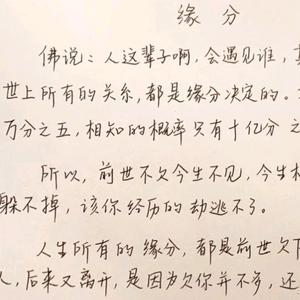 缘分
佛说：人这辈子啊，会遇见谁，
世上所有的关系，都是缘分决定的。
万分之五，相知的概率只有十亿分之
所以，前世不欠今生不见，今生
躲不掉，该你经历的劫逃不了。
人生所有的缘分，都是前世欠下
人，后来又离开，是因为欠你并不多，还